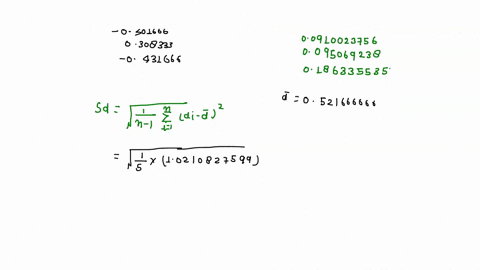 -0.301666
0.308333
-0.431666
0.0910023756
0.095069238
0.186335535
d̄ = 0.521666666
Sd = √(1/(n-1) Σ_{i=1}^{n} (di - d̄)²
= √(1/5 × (1.0210827599)